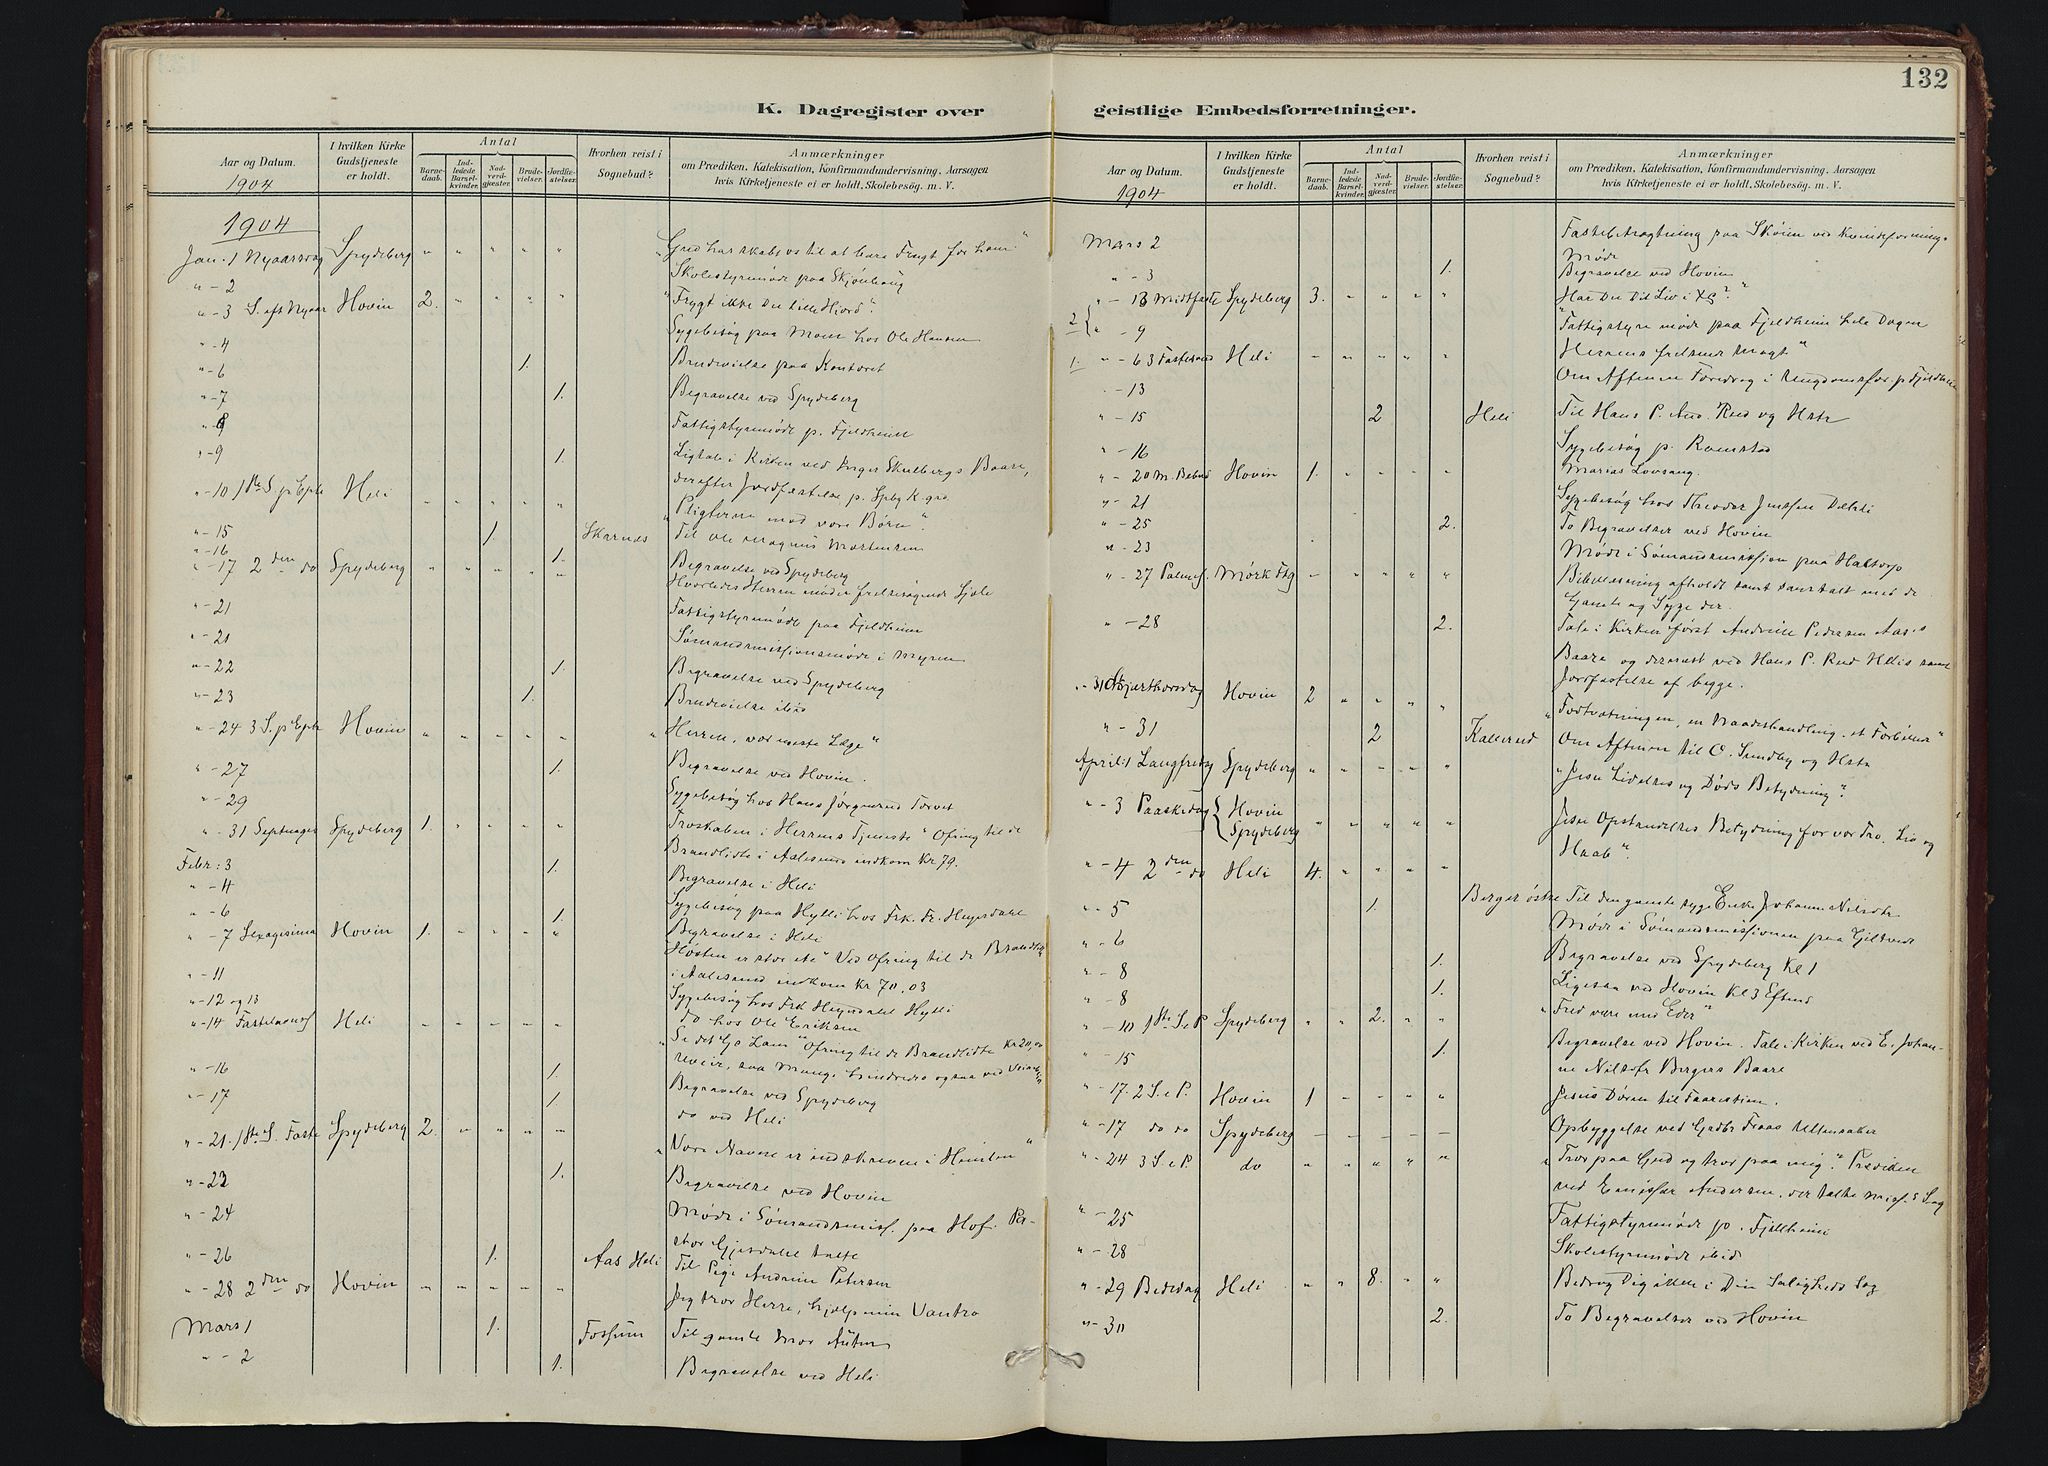 132
K. Dagregister over geistlige Embedsforretninger.
Aar og Datum. I hvilken Kirke Gudstjeneste er holdt. Antal Barnedaab. Indledede Barselkvinder. Nadverdgjæster. Brudevielser. Jordfæstelser. Hvorhen reist i Sognebud? Anmærkninger om Prædiken, Katekisation, Konfirmandundervisning, Aarsagen hvis Kirketjeneste ei er holdt, Skolebesøg. m. V.
1904
1904
Jan. 1 Nyaarsdag Spydeberg " " " " " "Gud har skabt os til at bære Frugt for ham"
" - 2 Skolestyremøde paa Skjønhaug
" - 3 S. eft Nyaar Hovin 2. " " " " "Frygt ikke Du lille Hjord".
" - 4 Sygebesøg paa Moen hos Ole Hansen
" - 6 1. Brudevielse paa Kontoret
" - 7 1. Begravelse ved Spydeberg
" - 8 Fattigstyremøde p. Fjeldheim
" - 9 1. Ligtale i Kirken ved Inger Skulbergs Baare,
derefter Jordfæstelse p. Spbg K.grd.
" - 10 1ste S. p Eph Heli " " " " " "Pligterne mod vore Børn".
" - 15 1. Skarnæs Til Ole Magnus Mortensen
" - 16 1. Begravelse ved Spydeberg
" - 17 2den do Spydeberg " " " " " Hvorledes Herren møder frelsesøgende Sjæle
" - 21 Fattigstyremøde paa Fjeldheim
" - 21 Sømandsmissionsmøde i Myren
" - 22 1. Begravelse ved Spydeberg
" - 23 1. Brudevielse ibid
" - 24 3 S. p Eph Hovin " " " " " "Herren, vor meste Læge"
" - 27 1. Begravelse ved Hovin.
" - 29 Sygebesøg hos Hans Jørgensrud Torvet
" - 31 Septuages Spydeberg 1. " " " " Troskaben i Herrens Tjeneste" Ofring til de
Brandlidte i Aalesund indkom Kr 79.
Febr: 3 1. Begravelse i Heli
" - 4 Sygebesøg paa Hylli hos Frk. Fr. Heyerdahl
" - 6 1. Begravelse i Heli
" - 7 Sexagesima Hovin 1. " " " " Høsten er stor etc" Ved Ofring til de Brandlidte
i Aalesund indkom Kr 70.03
" - 11 Sygebesøg hos Frk Heyerdahl Hylli
" - 12 og 13 do hos Ole Eriksen
" - 14 Fastelavnss Heli " " " " " "Se det Gs Lam" Ofring til de Brandlidte Kr 20,00
" - 16 1. Begravelse ved Spydeberg
" - 17 1. do ved Heli
" - 21. 1ste S. Faste Spydeberg 2. " " " " "Vore Navne er indskrevne i Himlen"
" - 23 1. Begravelse ved Hovin
" - 24 Møde i Sømandsmiss. paa Hof. Pastor
Gjesdahl talte
" - 26 1. Aas Heli Til Pige Andrine Petersen
" - 28 2den do Hovin " " " " " Jeg tror Herre, hjælp min Vantro
Mars 1 1. Fossum Til gamle Mor
" - 2 1. Begravelse ved Heli
Aar og Datum. I hvilken Kirke Gudstjeneste er holdt. Antal Barnedaab. Indledede Barselkvinder. Nadverdgjæster. Brudevielser. Jordfæstelser. Hvorhen reist i Sognebud? Anmærkninger om Prædiken, Katekisation, Konfirmandundervisning, Aarsagen hvis Kirketjeneste ei er holdt, Skolebesøg. m. V.
1904
Mars 2 Fastebetragtning paa Skøien ved Kvindeforenings
Møde
" - 3 1. Begravelse ved Hovin
" - 13 Midtfaste Spydeberg 3. " " " " "Har Du Dit Liv i Xs?"
2 " - 9 Fattigstyremøde paa Fjeldheim hele Dagen
1. " - 6 3 Fastesønd Heli " " " " " Herrens frelsende Magt"
" - 13 Om Aftenen Foredrag i Ungdomsfor. p. Fjeldheim
" - 15 2 Heli Til Hans P. And. Rud og Hstr
" - 16 Sygebesøg p. Ramstad
" - 20 M. Bebud Hovin 1. " " " " Marias Lovsang.
" - 21 Sygebesøg hos Theodor Jenssen Dæhli
" - 25 2. To Begravelser ved Hovin
" - 23 Møde i Sømandsmission paa Haltorp
" - 27 Palmes. Mørk Ftg " " " " " Bibellæsning afholdt samt samtalt med de
Gamle og Syge der.
" - 28 2. Tale i Kirken først Andrine Pedersen Aas's
Baare og dernæst ved Hans P. Rud Helis samt
Jordfæstelse af begge.
" - 31 Skjærthorsdag Hovin 2 " " " " "Fodtvætningen, en Naadeshandling, et Forbillede"
" - 31 2 Kallerud Om Aftenen til O. Sundby og Hstr
April: 1 Langfredag Spydeberg " " " " " "Jesu Lidelses og Døds Betydning".
" - 3 Paaskedag Hovin
Spydeberg " " " " " Jesu Opstandelses Betydning for vor Tro, Liv og
Haab".
" - 4 2den do Heli 4. " " " "
" - 5 1. Berger østre Til den gamle syge Enke Johanne Nilsdtr
" - 6 Møde i Sømandsmissionen paa Giltvedt
" - 8 1. Begravelse ved Spydeberg Kl 1
" - 8 1. Ligesaa ved Hovin Kl 3 Efterm
" - 10 1ste S. e P Spydeberg " " 2. " " "Fred være med Eder"
" - 15 1. Begravelse ved Hovin. Tale i Kirken ved E. Johanne
Nilsdtr Bergers Baare
" - 17. 2 S. e P. Hovin 1 " " " " Jesus Døren til Faarestien.
" - 17 do do Spydeberg " " " " " Opbyggelse ved Grdbr Traas Ullensaker
" - 24 3 S. e P. do " " " " " "Tror paa Gud og tror paa mig". Prædiken
ved Emissær Andersen, der talte Miss.s Sag
" - 25 Fattigstyremøde p. Fjeldheim
" - 28 Skolestyremøde ibid
" - 29 Bededag Heli " " 8. " " Bedrag Dig ikke i Din Saligheds Sag
" - 30 2. To Begravelser ved Hovin